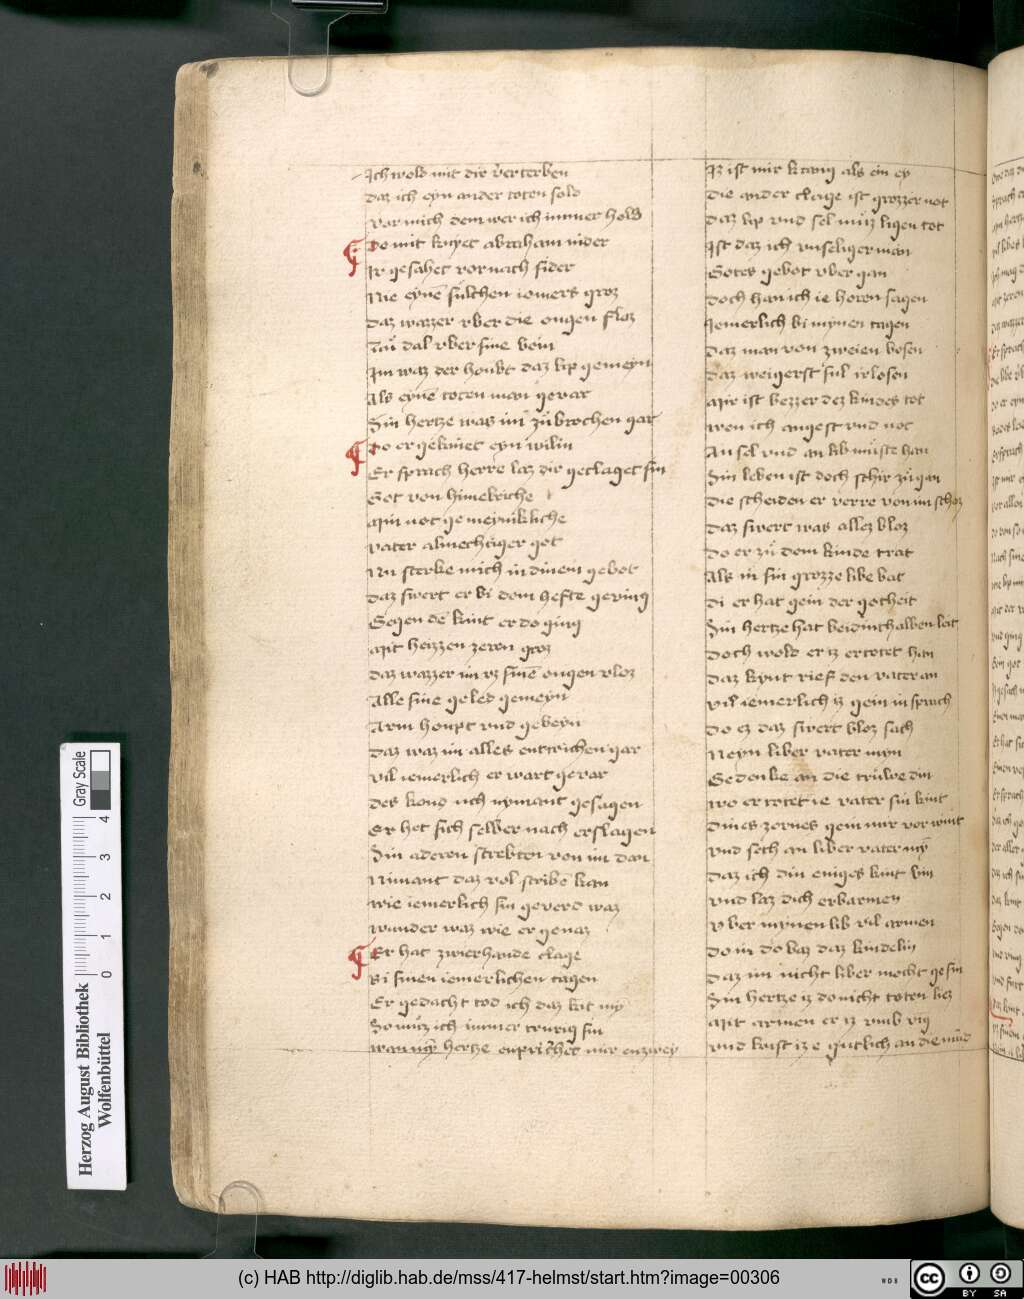 Ich wold mit dir vᵉrterben
daz ich eyn ander toten sold
vor mich dem wer ich immer hold
Do mit knyet abraham nider
Ir gesahet vor nach sider
Nie eynē sulchen iomers groz
daz wazzer vber die ougen floz
dal vber sine bein
Im waz der houbt daz lip gemeyn
Als eynē toten man gevar
Sin hertze was im zůbrochen gar
Do er gekniet eyn wilin
Er sprach herre laz dir geclaget sin
Got von himelriche
Min not gemeynikliche
vater almechtiger got
Nu sterke mich in dinem gebot
daz swert er bi dem hefte geving
Gegen dē kint er do ging
Mit heizzen zeren groz
daz wazzer im vz sinē ougen vloz
Alle sine geled gemeyn
Arm houpt vnd gebeyn
daz waz im alles entwichen gar
vil iemerlich er wart gevar
des kond uch nymant gesagen
Er het sich selber nach erslagen
Sin aderen strebten von im dan
Nimant daz vol scribē kan
wie iemerlich sin geverd waz
wunder waz wie er genaz
Er hat zwierhande clage
Bi sinen iemerlichen tagen
Er gedacht tod ich daz kit my
So můz ich immer trurig sin
wan my hertze enprichet mir enzwey
Iz ist mir krang als ein ey
die ander clage ist grozzer not
daz lip vnd sel můz ligen tot
Ist daz ich vnseliger man
Gotes gebot vber gan
doch han ich ie horen sagen
Iemerlich bi mynen tagen
daz man von zweien bosen
daz weigerst sul irlosen
Mir ist bezzer dez kindes tot
wen ich angest vnd not
An sel vnd an lib můste han
Sin leben ist doch schir zůgan
die scheiden er verre von im schoz
daz swert was allez bloz
do er zů dem kinde trat
Als in sin grozze libe bat
di er hat gein der gotheit
Sin hertze hat beidinthalben leit
doch wold er iz ertotet han
daz kynt rief den vater an
vil iemerlich iz gein im sprach
do ez daz swert bloz sach
Neyn liber vater myn
Gedenke an die truwe din
wo er totet ie vater sin kint
dines zornes gein mir vor wint
vnd seth an liber vater mȳ
daz ich din eniges kint bin
vnd laz dich erbarmen
vber mynen lib vil armen
do in do bat daz kindelin
daz im nicht liber mocht gesin
Sin hertze iz do nicht toten liez
Mit armen er iz vmb ving
vnd kust iz e gutlich an die mūd
Herzog August Bibliothek
Wolfenbüttel
0 1 2 3 4
Gray Scale
(c) HAB http://diglib.hab.de/mss/417-helmst/start.htm?image=00306
WDB
cc BY SA